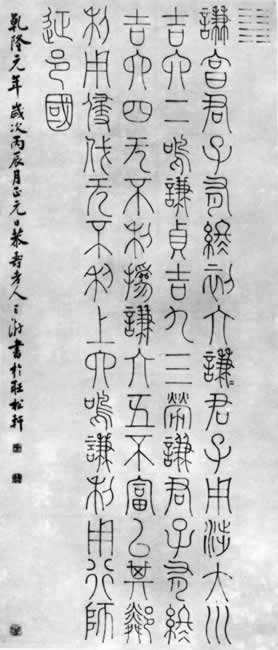 謙亯君子有終初六謙〻君子用涉大川
吉六二鳴謙貞吉九三勞謙君子有終
吉六四无不利撝謙六五不富以其鄰
利用侵伐无不利上六鳴謙利用行師
征邑國
乾隆元年歲次丙辰月正元日恭壽老人王澍書於松軒